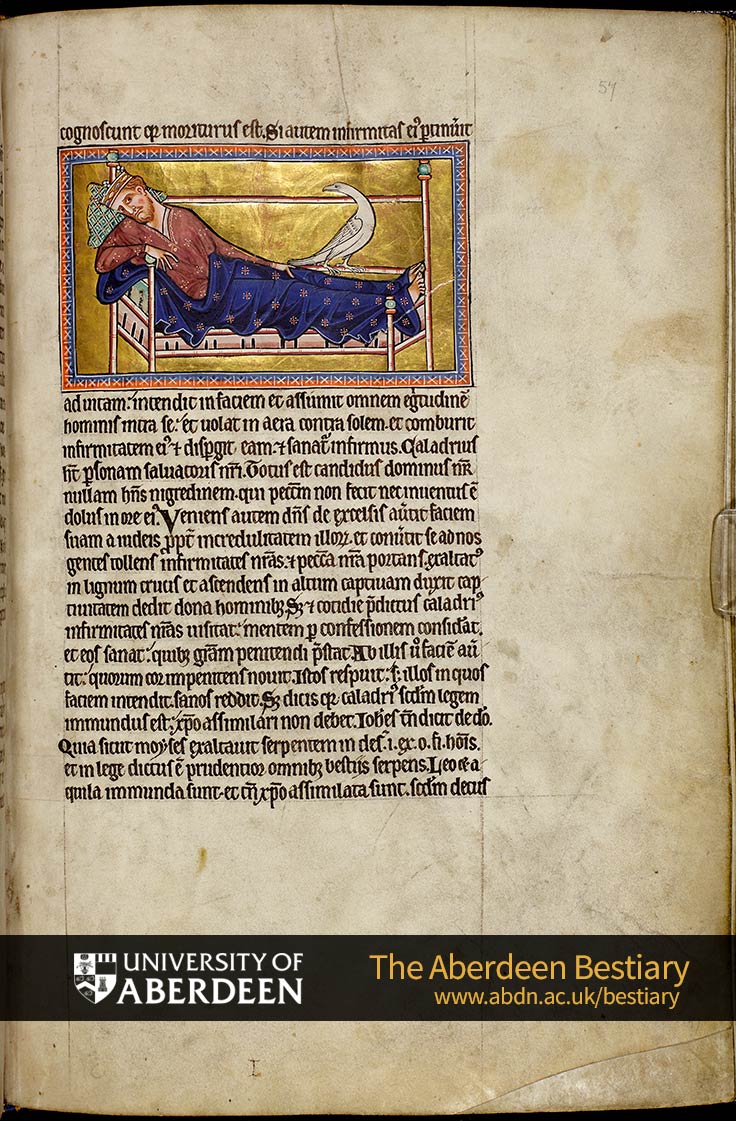 57
cognoscunt qꝫ moriturus est. Si autem infirmitas ei' ꝑtinuit
ad uitam: intendit in faciem et assumit omnem egritudinē
hominis intra se: et uolat in aera contra solem. et comburit
infirmitatem ei' ⁊ disꝑgit eam. ⁊ sanat' infirmus. Caladrius
ht̄ ꝑsonam saluatoris nr̄i. Totus est candidus dominus nr̄
nullam hn̄s nigredinem. qui pecc̄m non fecit nec inuentus ē
dolus in ore ei'. Veniens autem dn̄s de excelsis au̾tit faciem
suam a iudeis ꝓpt̄ incredulitatem illoꝝ. et conu̾tit se ad nos
gentes tollens infirmitates nr̄as. ⁊ pecc̄a nr̄a portans. exaltat'
in lignum crucis et ascendens in altum captiuam duxit cap
tiuitatem dedit dona hominibꝫ Sꝫ ⁊ cotidie p̄dictus caladri'
infirmitates nr̄as uisitat: mentem ꝑ confessionem considat.
et eos sanat: quibꝫ gr̄am penitendi p̄stat. Ab illis u̾ faciē au̾
tit: quorum cor impenitens nouit. Istos respuit: s; illos in quos
faciem intendit. sanos reddit. Sꝫ dicis qꝫ caladri' scd̄m legem
immundus est: xp̄o assimilari non debet. Ioh̄es tn̄ dicit de dō.
Quia sicut moyses exaltauit serpentem in des̄. i. ex. o. fi. hōis.
et in lege dictus ē prudentior omnibꝫ bestiis serpens. Leo et a
quila immunda sunt. et tn̄ xp̄o assimilata sunt. scd̄m decus
UNIVERSITY OF
ABERDEEN
The Aberdeen Bestiary
www.abdn.ac.uk/bestiary